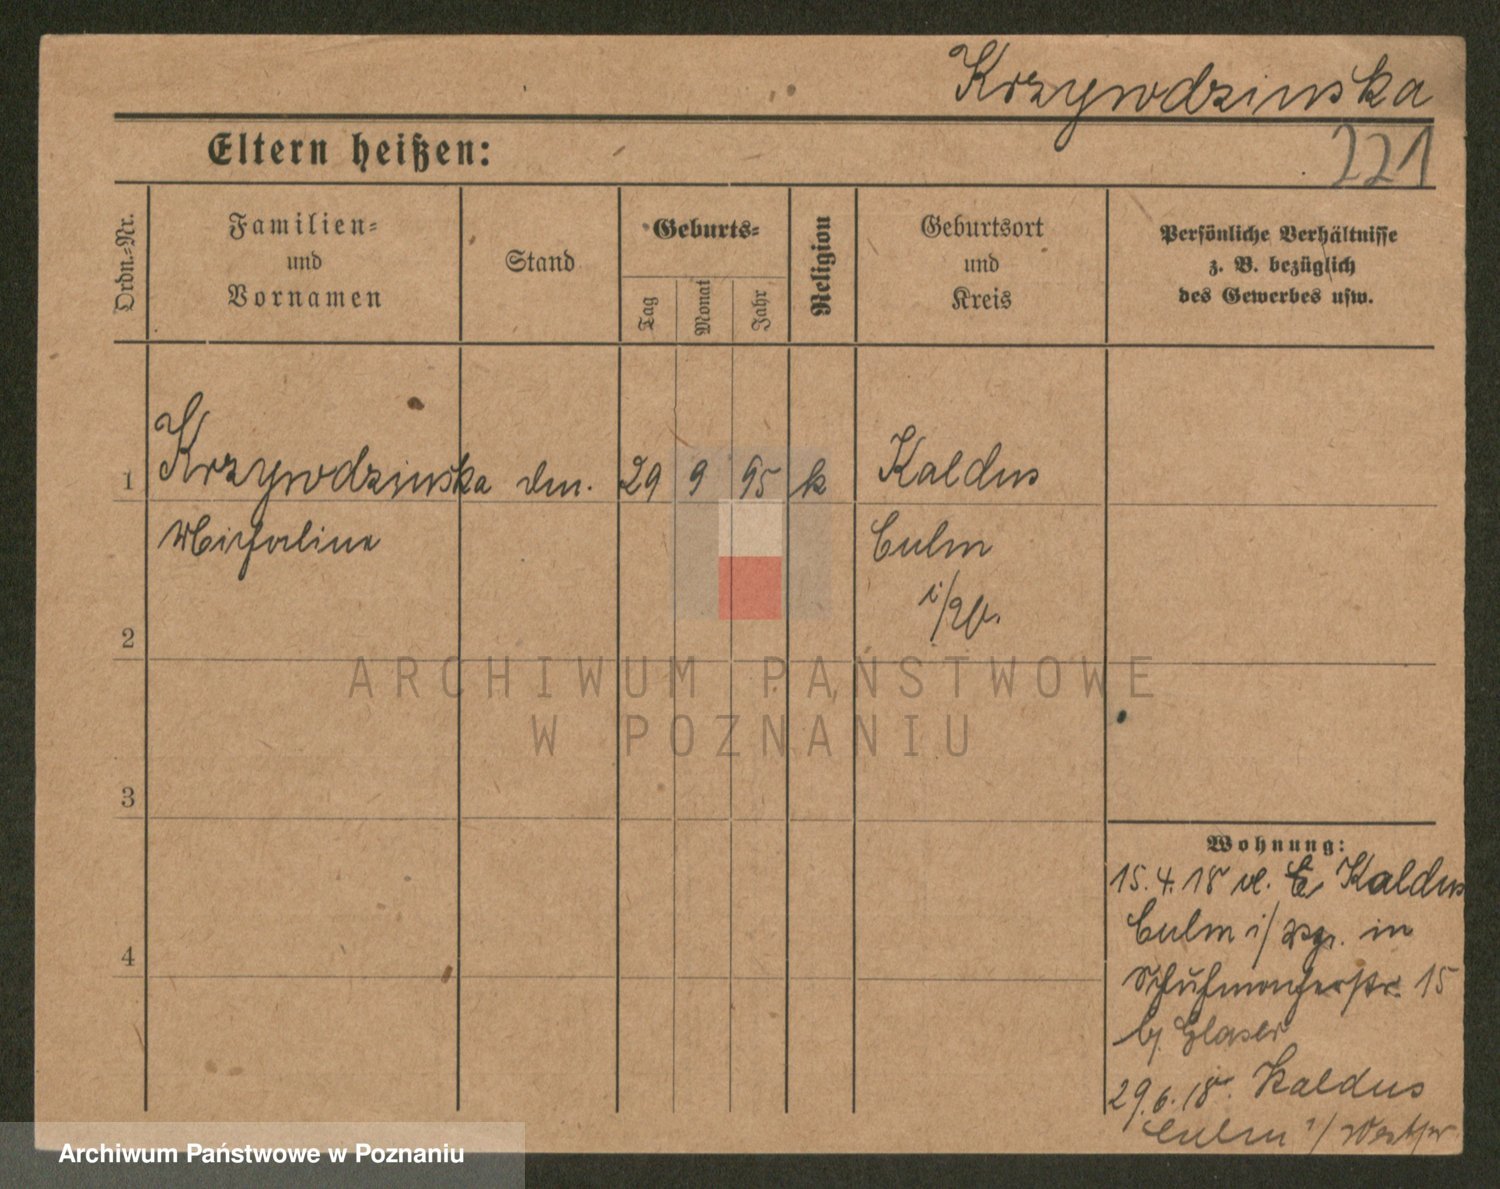 Krzywdzinska
221
Eltern heißen:
Ordn.-Nr.
Familien-
und
Vornamen
Stand
Geburts-
Tag
Monat
Jahr
Religion
Geburtsort
und
Kreis
Persönliche Verhältnisse
z. B. bezüglich
des Gewerbes usw.
1 Krzywdzinska 29 9 95 k Kaldus
Michaline Culm
2
3
4
Wohnung:
15.4.18 Kaldus
Culm i/ in
Schuhmacherstr. 15
b/ Glaser
29.6.18 Kaldus
Culm i/ Westpr
ARCHIWUM PAŃSTWOWE
W POZNANIU
Archiwum Państwowe w Poznaniu